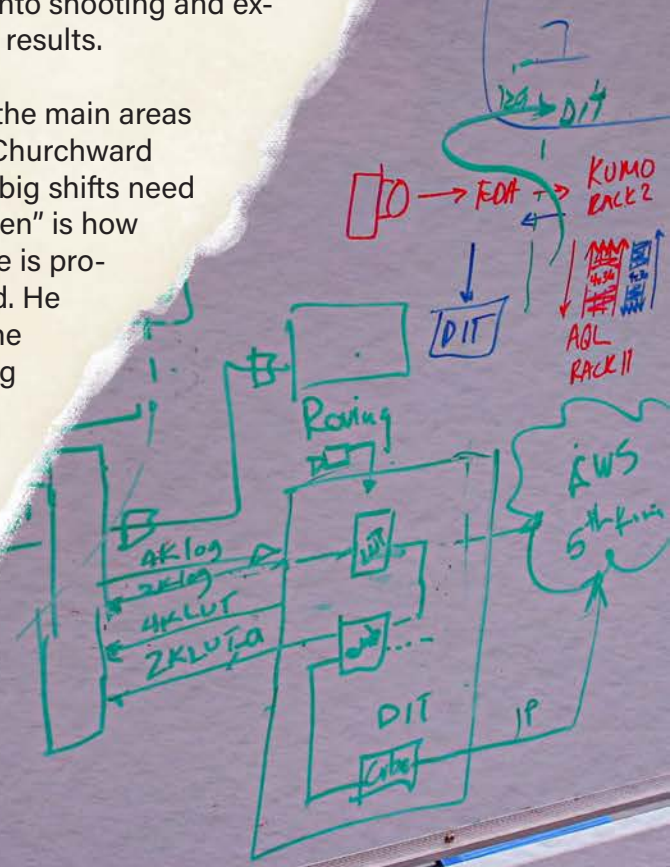 nto shooting and ex-
results.
the main areas
Churchward
big shifts need
en" is how
e is pro-
d. He
he
g
DIT
EDA
KUMO
RACK 2
DIT
AQL
RACK 11
Roving
AWS
5th
4K log
2K log
4KLUT
2KLUT
LUT
DIT
IP
Cube